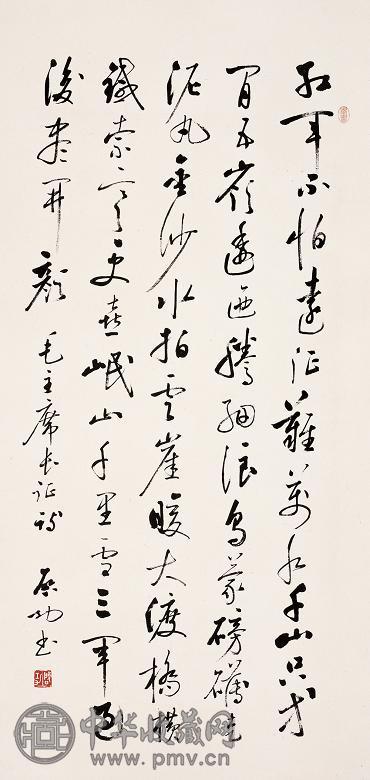 红军不怕遠征難萬水千山只等
閒五嶺逶迤腾细浪烏蒙磅礴走
泥丸金沙水拍云崖暖大渡橋横
鐵索寒更喜岷山千里雪三军過
後盡開顏 毛主席长征诗 启功书
中华收藏网
www.pmv.cn